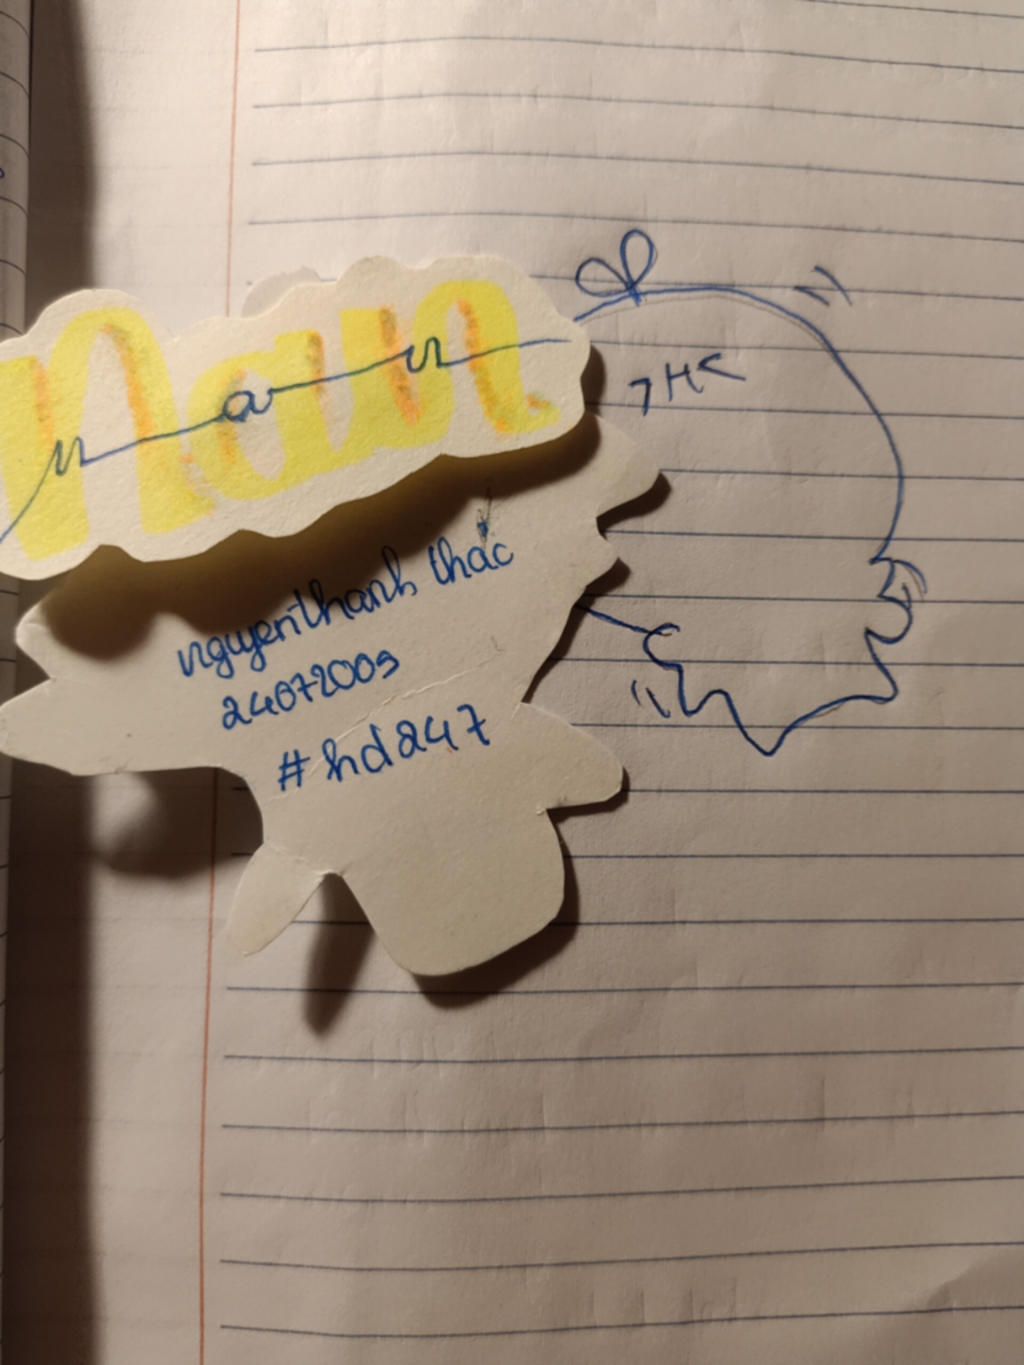 nan
nan
nguyenthanh thác
24072009
#hd247